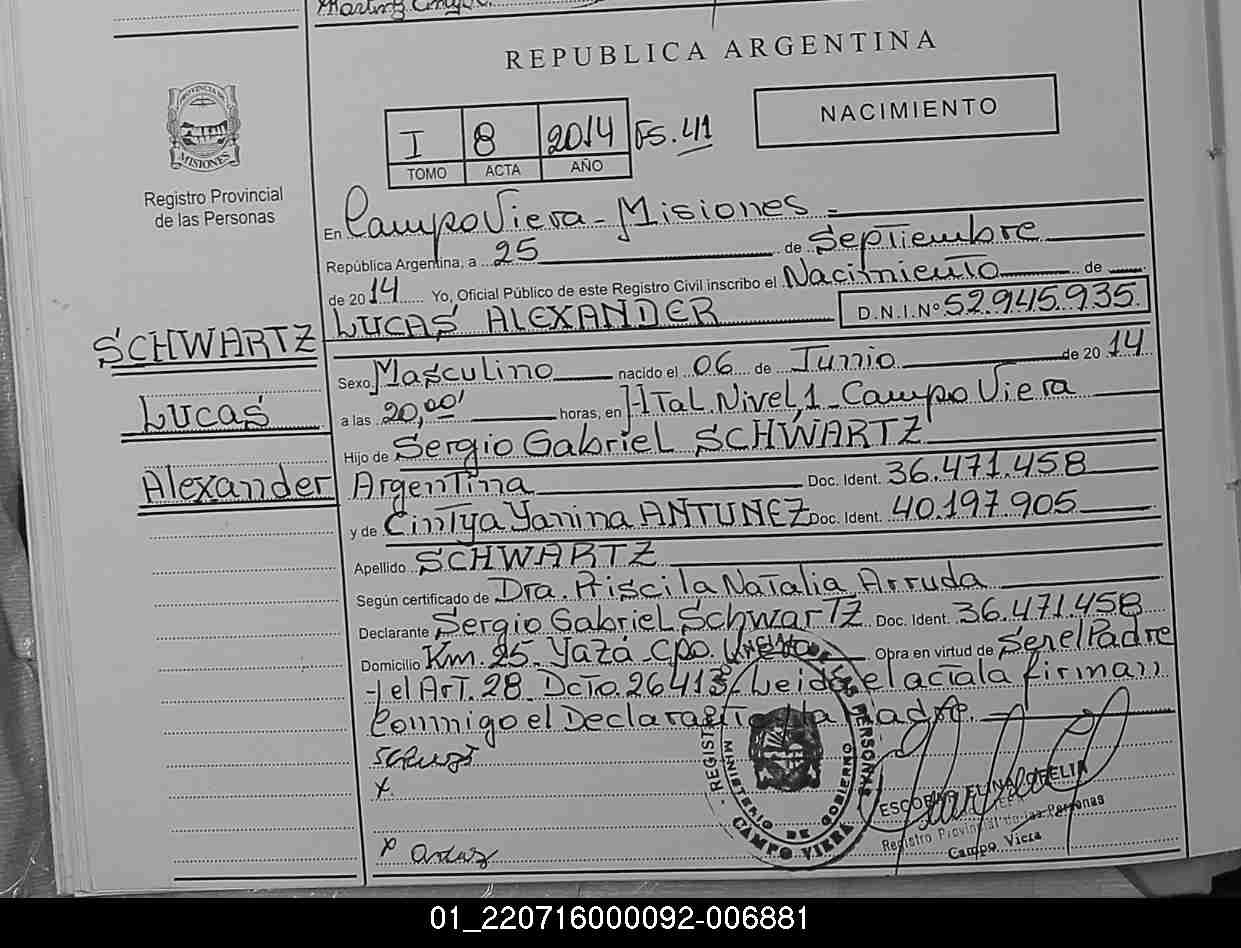 REPUBLICA ARGENTINA
PROVINCIA DE
MISIONES
Registro Provincial
de las Personas
NACIMIENTO
I 8 2014 FS. 41
TOMO ACTA AÑO
En Campo Viera - Misiones
República Argentina, a 25 de Septiembre
de 2014 Yo, Oficial Público de este Registro Civil inscribo el Nacimiento de
LUCAS ALEXANDER D.N.I.Nº 52.945.935
SCHWARTZ
Lucas
Alexander
Sexo Masculino nacido el 06 de Junio de 2014
a las 20,00' horas, en HTal. Nivel,1 - Campo Viera
Hijo de Sergio Gabriel SCHWARTZ
Argentina Doc. Ident. 36.471.458
y de Cintya Yanina ANTUNEZ Doc. Ident. 40.197.905
Apellido SCHWARTZ
Según certificado de Dra. Priscila Natalia Arruda
Declarante Sergio Gabriel Schwartz Doc. Ident. 36.471.458
Domicilio Km. 25 - Yazá - Cpo. Viera Obra en virtud de Ser el Padre
y el Art. 28 Dcto. 26413/ Leida el acta la firman
Conmigo el Declarante y la Madre.
x
x
REGISTRO PROVINCIAL DE LAS PERSONAS
MINISTERIO DE GOBIERNO
CAMPO VIERA
Registro Provincial de las Personas
Campo Viera
01_220716000092-006881